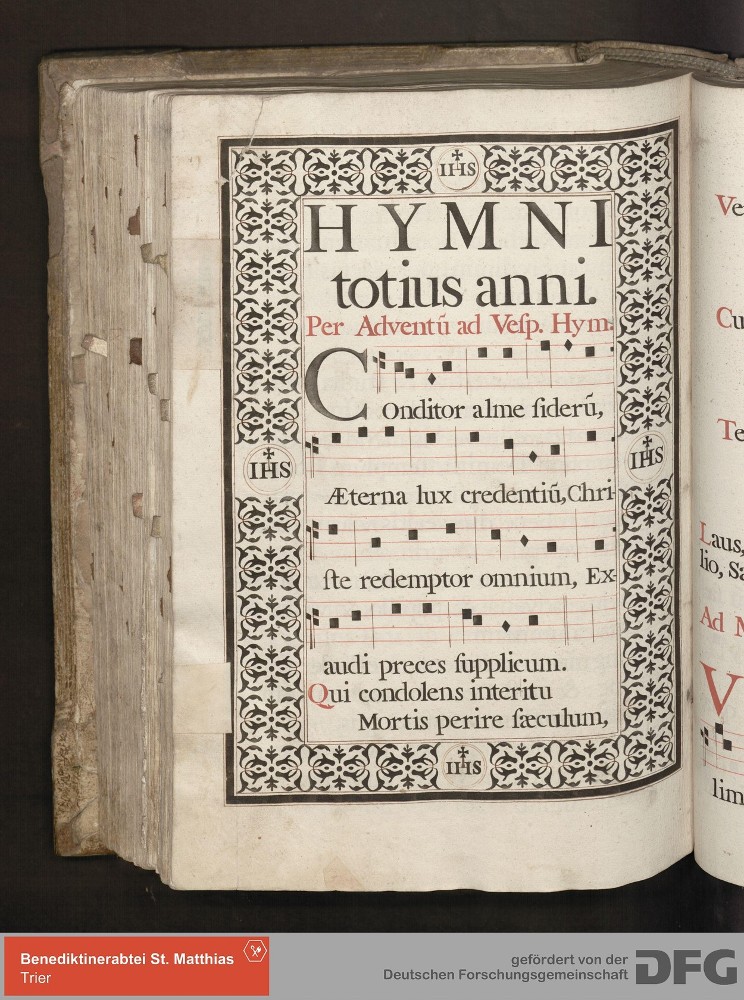 IHS
HYMNI
totius anni.
Per Adventũ ad Veſp. Hym:
Conditor alme ſiderũ,
Æterna lux credentiũ, Chri-
IHS
IHS
ſte redemptor omnium, Ex-
audi preces ſupplicum.
Qui condolens interitu
Mortis perire ſæculum,
IHS
Ve
Cu
Te
Laus,
lio, Sa
Ad
V
lim
Benediktinerabtei St. Matthias
Trier
gefördert von der
Deutschen Forschungsgemeinschaft
DFG